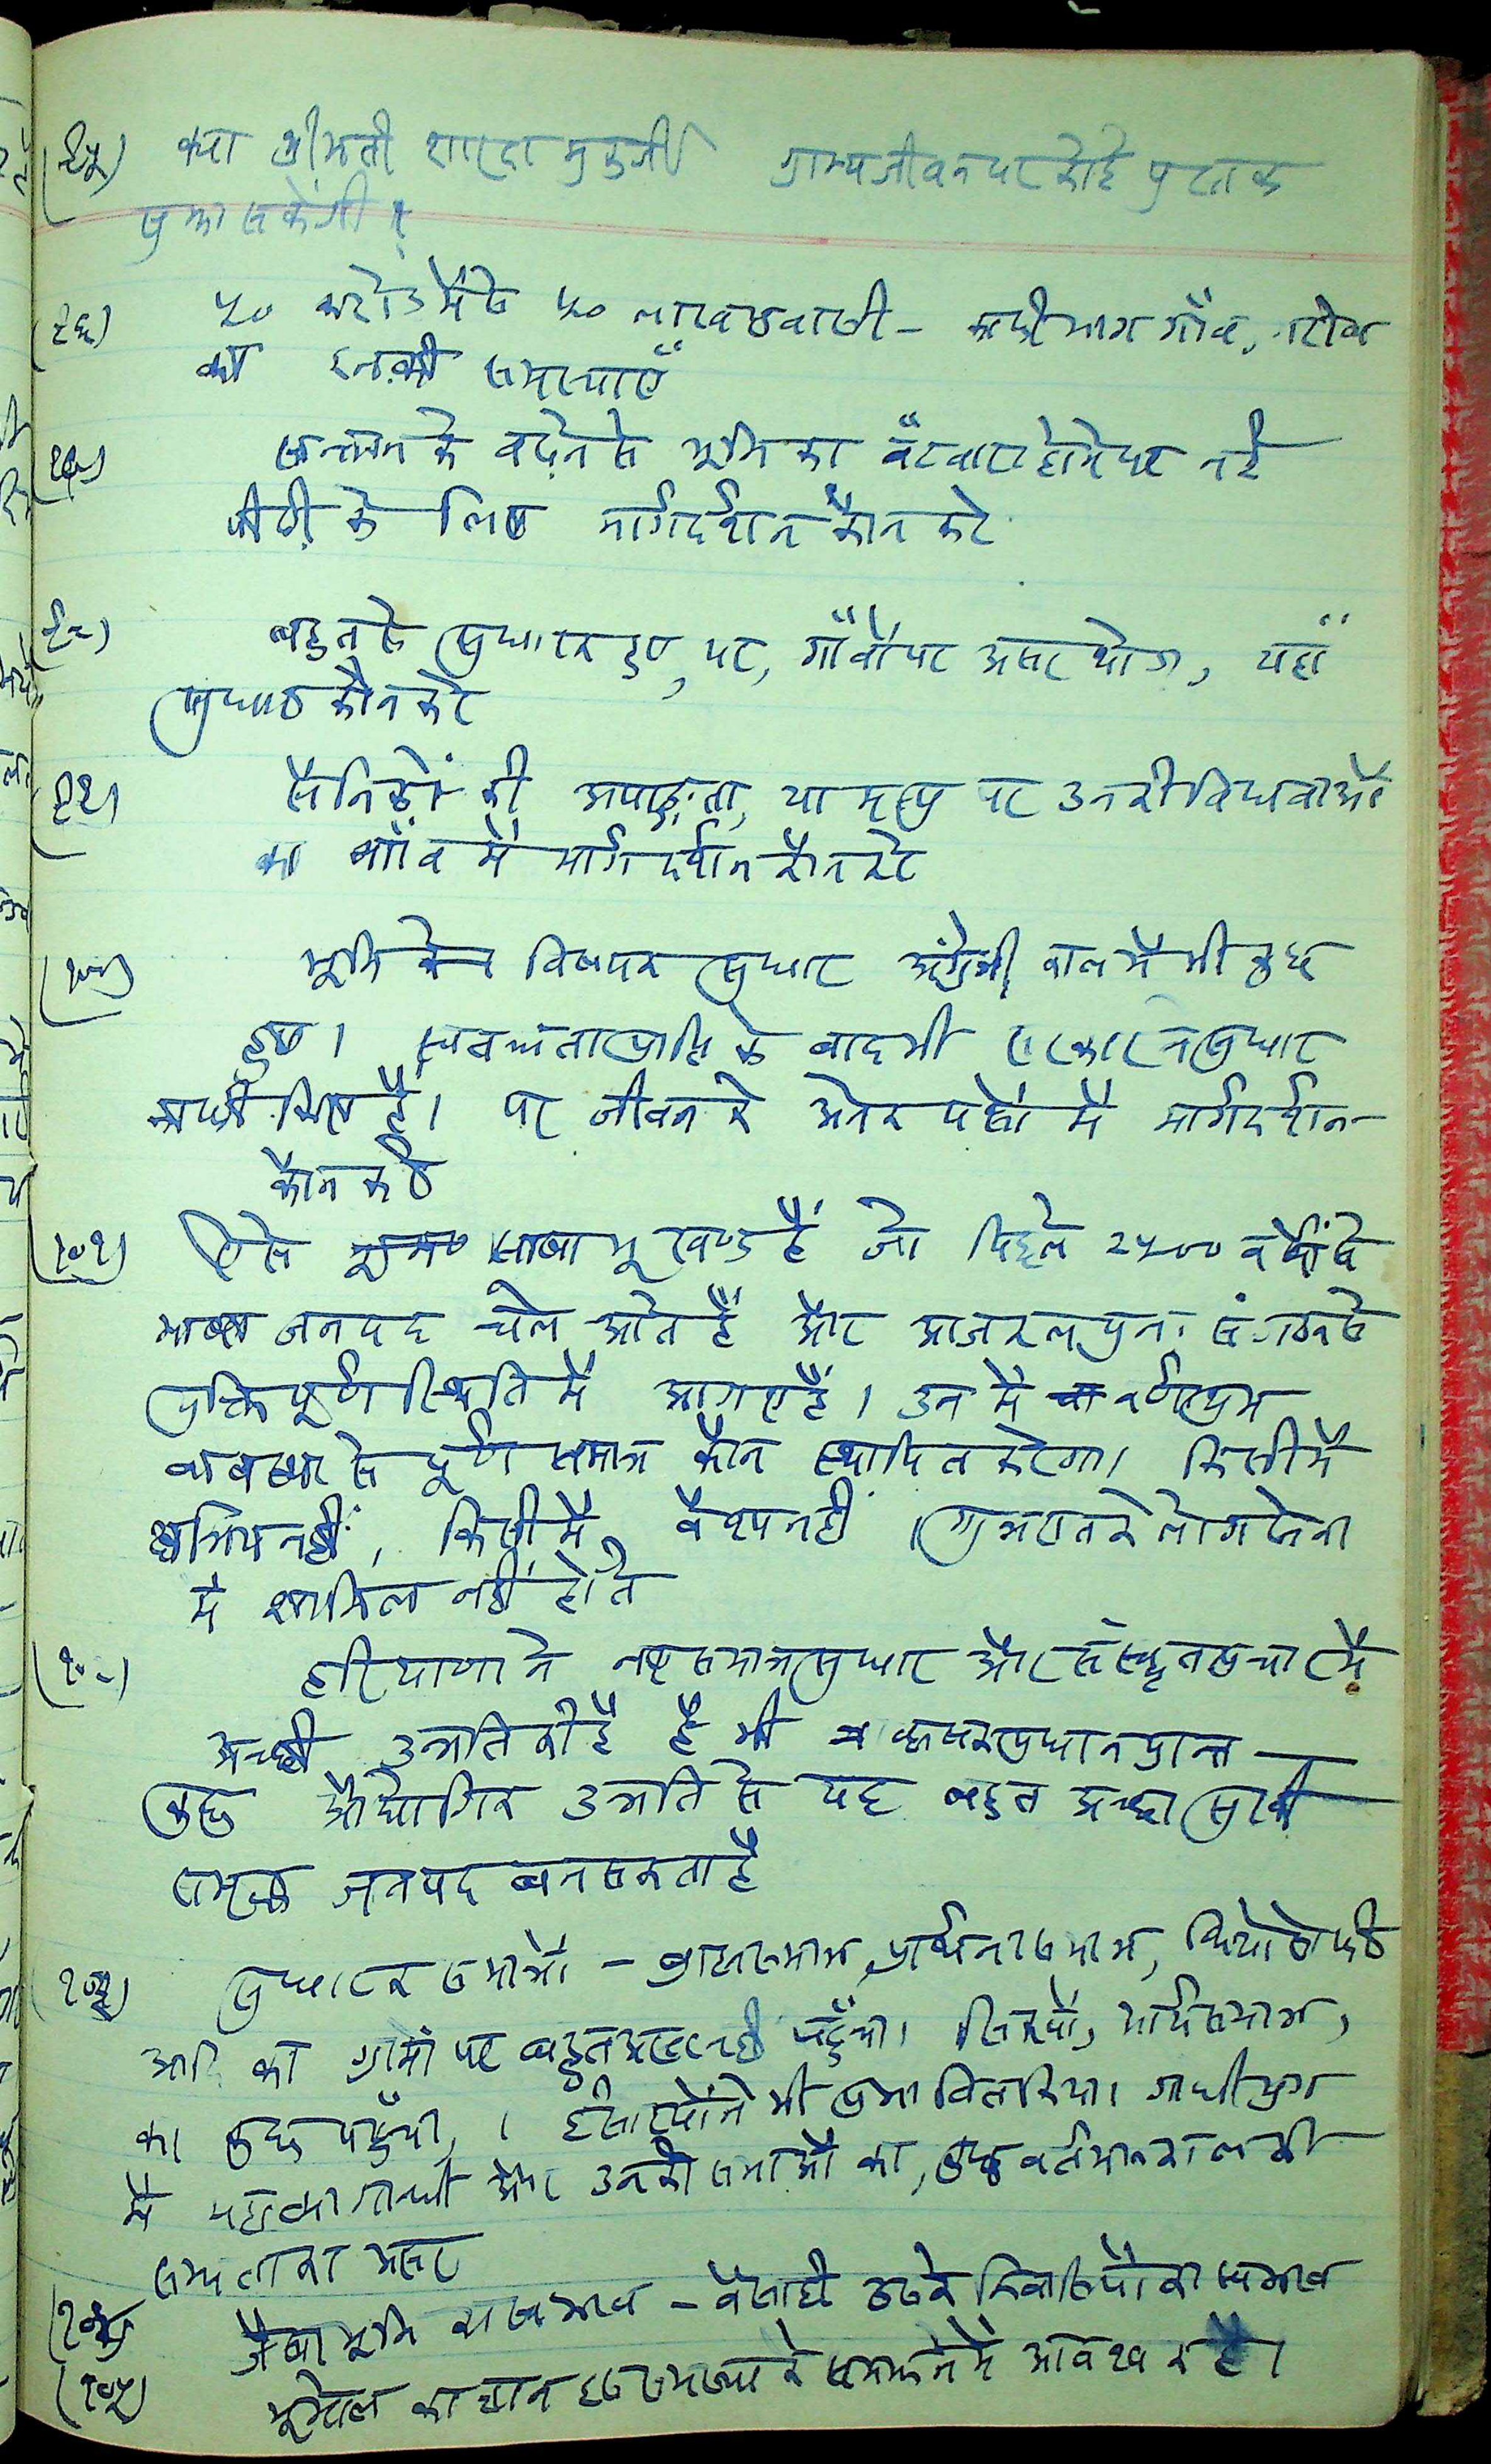 (९५) क्या श्रीमती शारदा मुकर्जी ग्राम्यजीवन पर कोई पुस्तक
सकेंगी ?
(९६) ५० करोड में से ५० लाख - गाँव,
की इनकी समस्याएँ
(९७) सन्तान के बढ़ने से भूमि का बँटवारा होने पर नई
पीढ़ी के लिए मार्गदर्शन कौन करे
(९८) बहुत से सुधारक हुए, पर, गाँवों पर असर थोडा, यहाँ
सुधार कौन करे
(९९) सैनिकों की अपाङ्गता, या मृत्यु पर उनकी विधवाओं
का गाँव में मार्गदर्शन कौन करे
(१००) भूमि विषयक सुधार अंग्रेजी काल में भी कुछ
हुए । स्वतन्त्रता प्राप्ति के बाद भी सरकार ने सुधार
काफी किए हैं । पर जीवन के अनेक पक्षों में मार्गदर्शन
कौन करे
(१०१) ऐसे भूखण्ड हैं जो पिछले २५०० वर्षों से
जनपद चले आते हैं और आजकल पुनः संगठन से
स्थिति में आ गए हैं । उन में वर्णाश्रम
व्यवस्था से पूर्ण समाज कौन स्थापित करेगा । किसी में
क्षत्रिय नहीं, किसी में वैश्य नहीं । गुजरात के लोग सेना
में शामिल नहीं होते
हरियाणा ने समाज सुधार और संस्कृत प्रचार में
अच्छी उन्नति की है है भी कृषक प्रधान प्रान्त —
कुछ औद्योगिक उन्नति से यह बहुत अच्छा सुखी
समृद्ध जनपद बन सकता है
सुधारक समाजों - ब्राह्मसमाज, प्रार्थनासमाज, थियोसोफी
आदि का ग्रामों पर बहुत असर नहीं पहुँचा । सिक्खों, आर्यसमाज,
का कुछ पहुँचा, । ईसाइयों ने भी प्रभावित किया । गांधीयुग
में महात्मा गान्धी और उनकी सभाओं का, कुछ वर्तमान काल की
सभ्यता का असर
(१०४) जैसा भूमि का स्वभाव - वैसा ही उसके निवासियों का स्वभाव
(१०५) भूगोल का ज्ञान इस समस्या के समझने में आवश्यक है ।